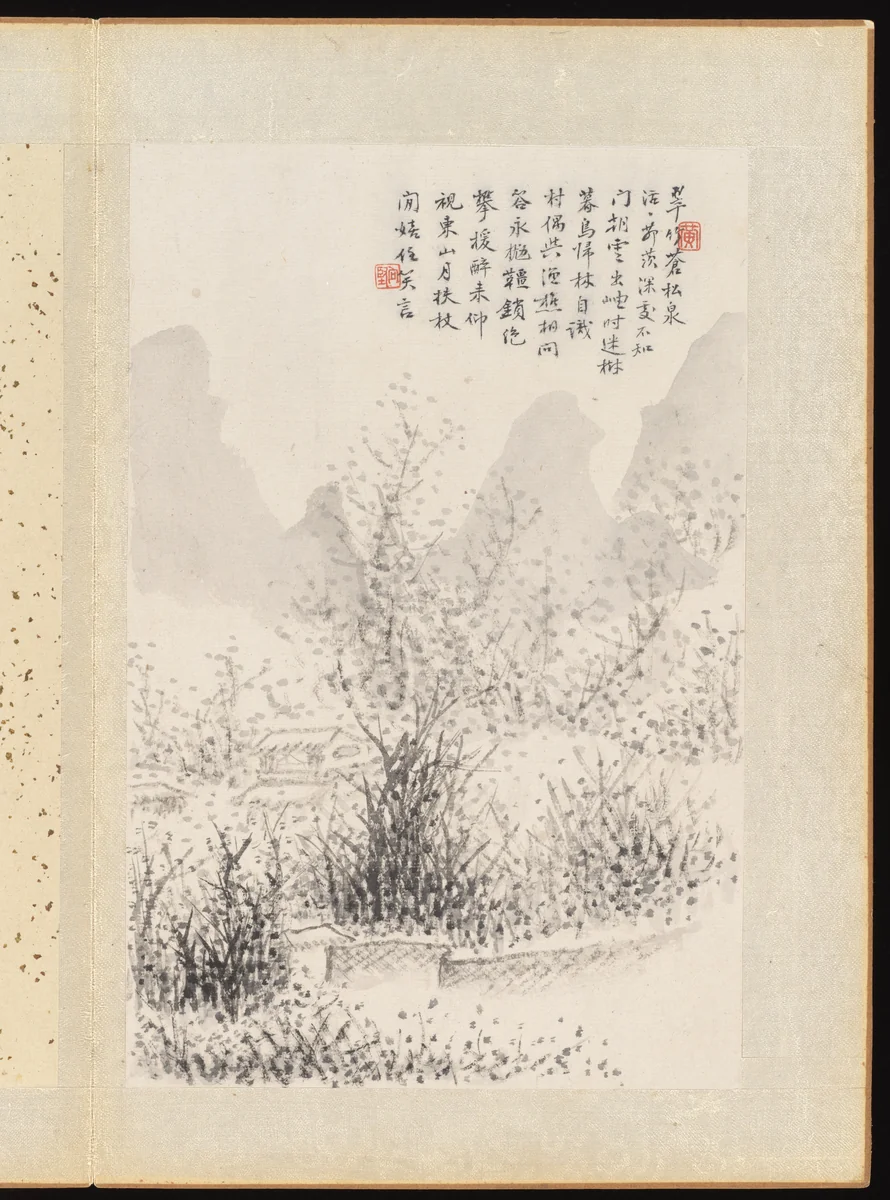 翠竹蒼松泉
活、茆茨深處不知
门朝雲出岫时迷樹
暮鳥歸林自識
村偶與漁樵相问
答永拋韁鎖絕
攀援醉来仰
視東山月扶杖
閒嬉任笑言
黃
向堅